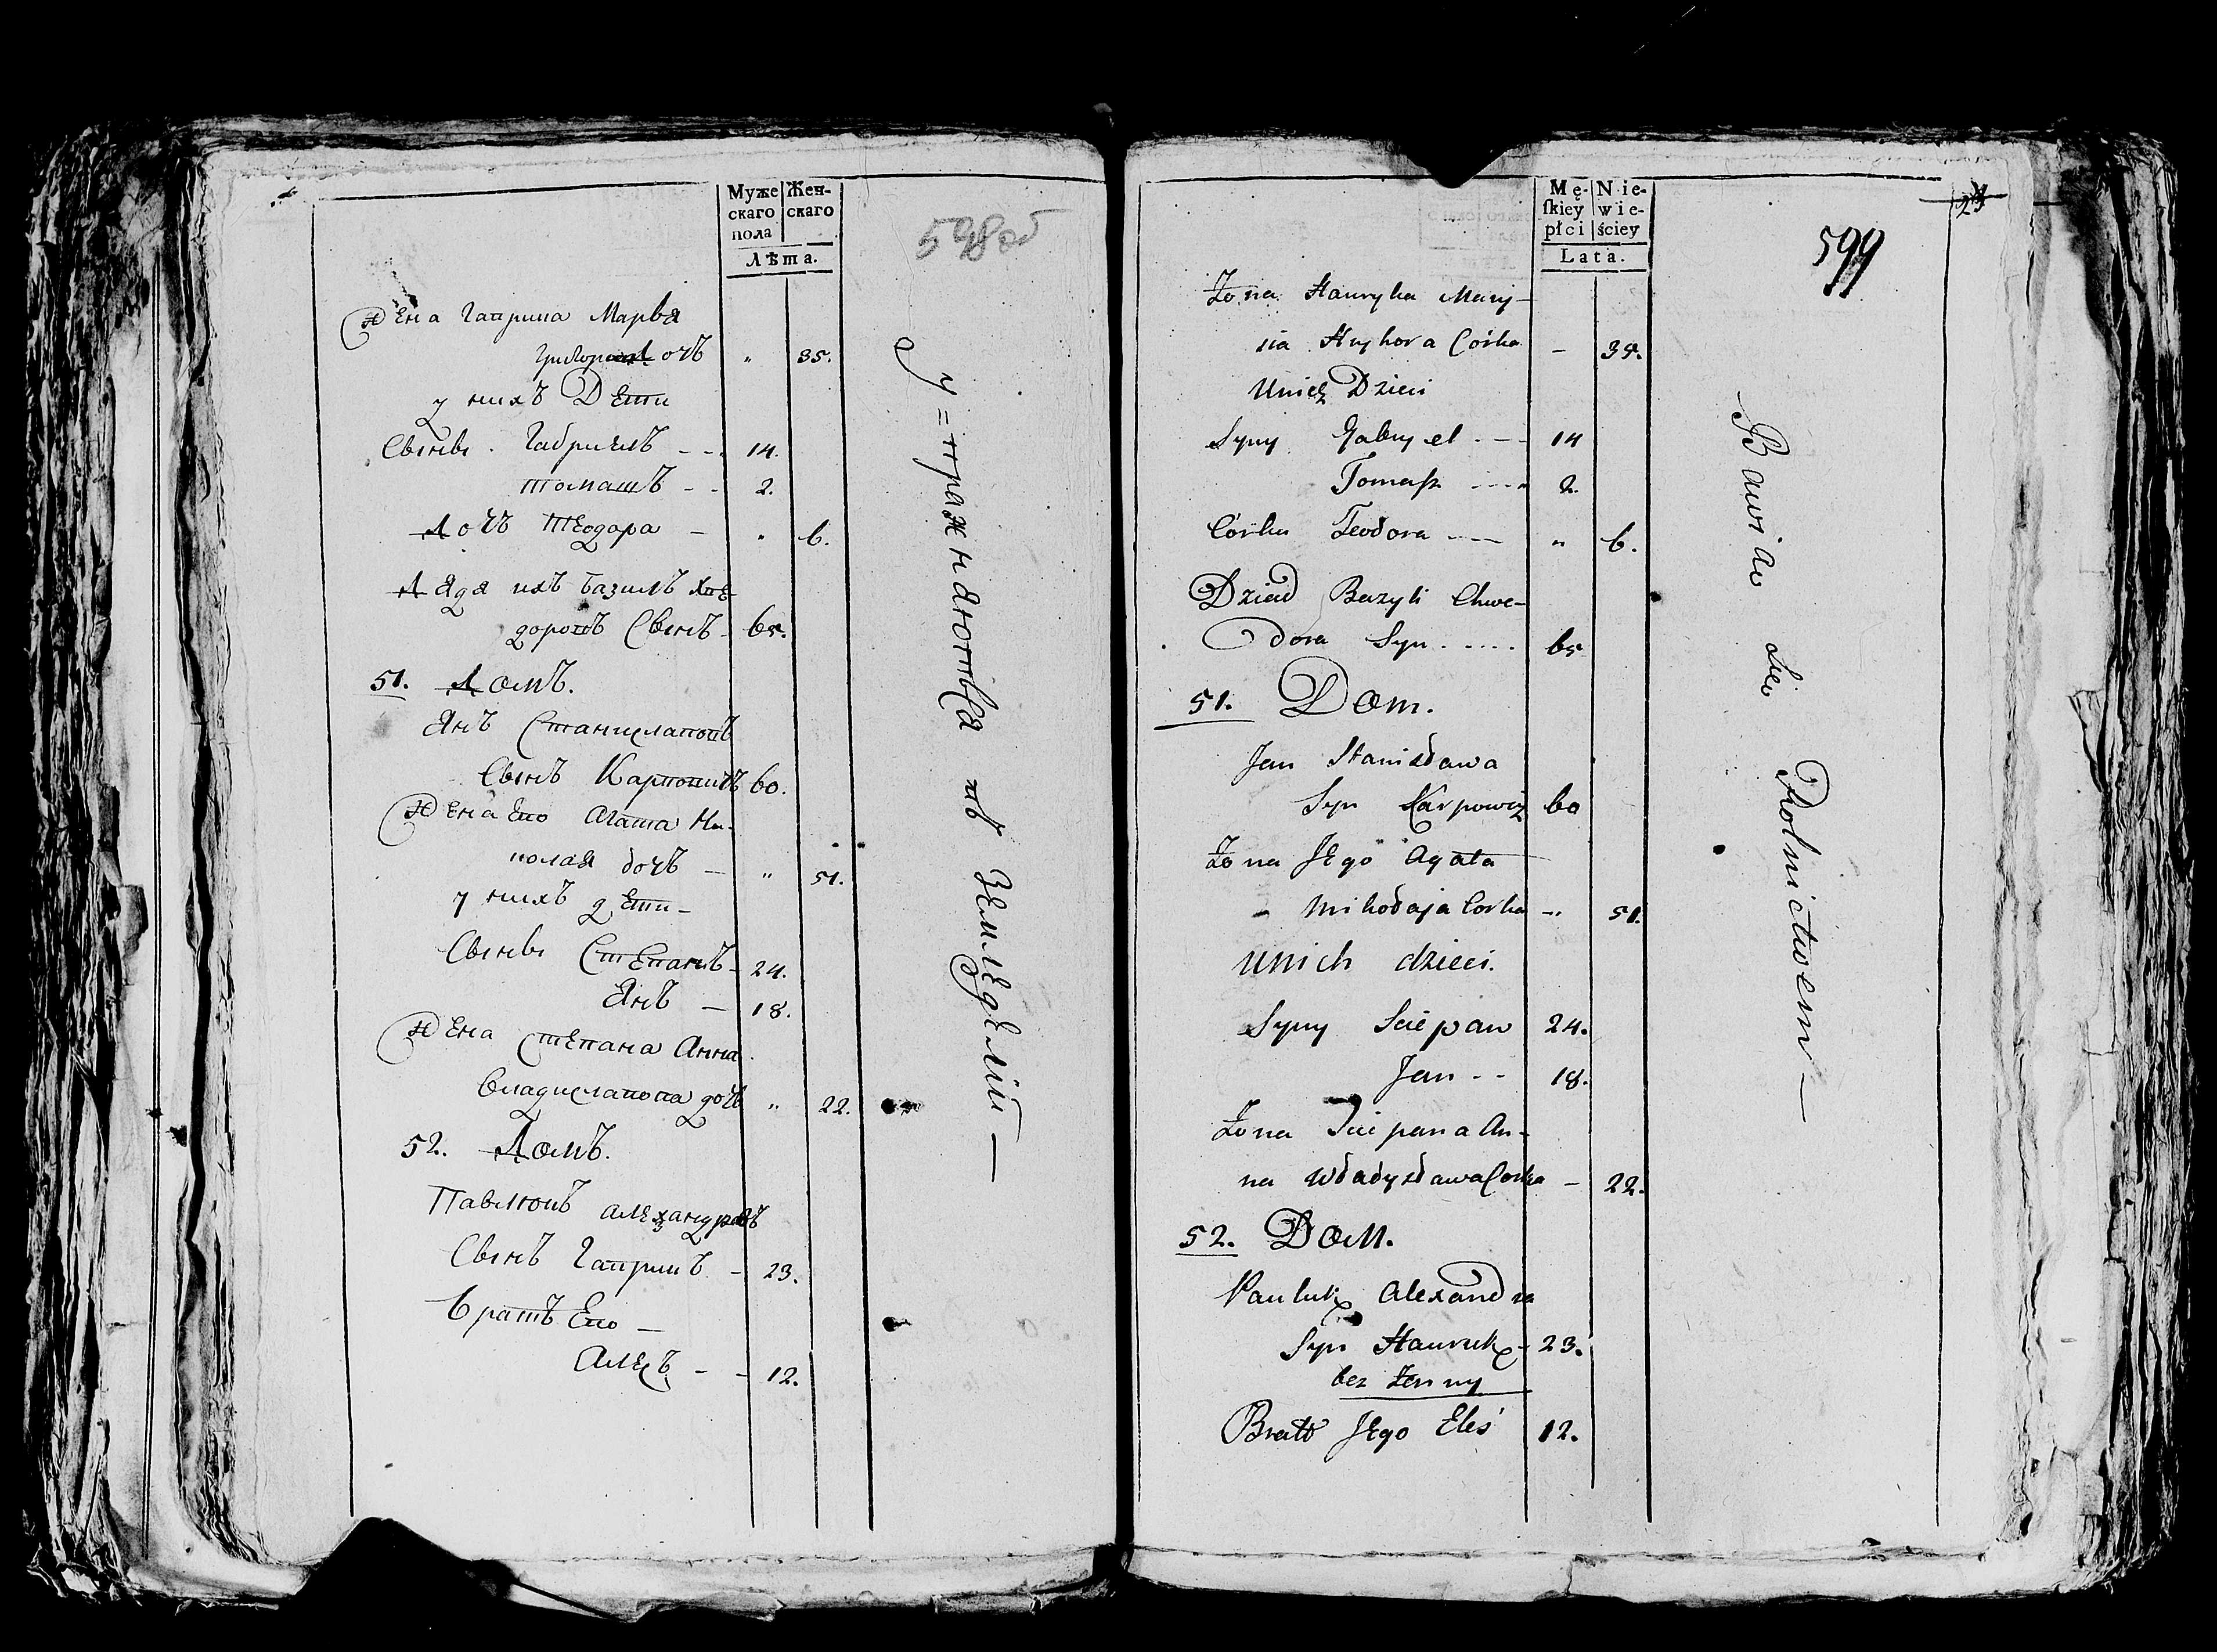 Муже
скаго
пола
Жен-
скаго
Лѣта.
598об
Жена Гаприла Марья
дочъ " 35.
у нихъ Дети
Сыны. Габриелъ - - 14.
Томашъ - - 2.
Дочъ Теодара - " 6.
Дядя ихъ Базилъ Хве-
доровъ Сынъ - 65.
51. Домъ.
Янъ Станиславовъ
Сынъ Карповичъ 60.
Жена Его Агата Ни-
колая дочъ - " 51.
у нихъ дети -
Сыны Степанъ - 24.
Янъ - 18.
Жена Степана Анна
Владиславова дочъ " 22.
52. Домъ.
Павлюкъ Александровъ
Сынъ Гаврукъ - 23.
Братъ Его -
Алесъ - - 12.
упражняются въ земледелий -
Mę-
skiey
płci
Nie-
wie-
ściey
Lata.
24
599
Żona Hawryła Mary-
ia Hryhora Córka - 35.
Unich Dzieci
Syny Gabryel - - 14
Tomasz - - - 2.
Córka Teodora - - - " 6.
Dziad Bazyli Chwe-
dora Syn . . . . . 65
51. Dom.
Jan Stanisława
Syn Karpowicz 60
Żona Jego Agata
Mikołaja Corka - " 51.
Unich dzieci.
Syny Sciepan 24.
Jan - - 18.
Żona Sciepana An-
na Władysława Corka - 22.
52. Dom.
Pauluk Alexandra
Syn Hawruk - 23.
bez Żenny
Brat Jego Eleś 12.
Bawią się Rolnictwem -